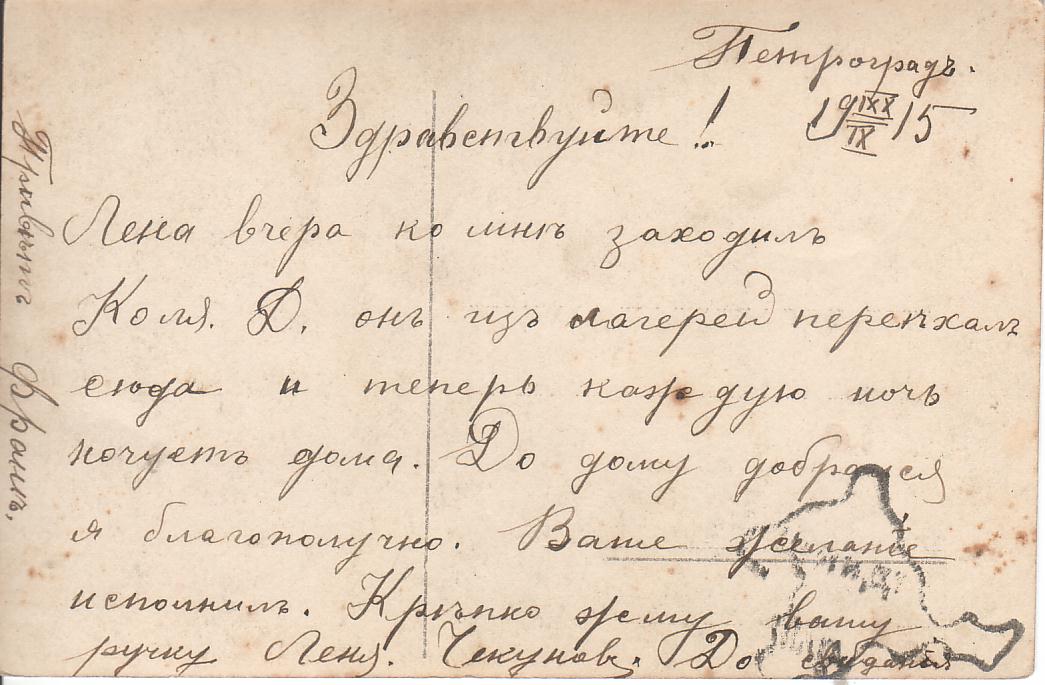 Петроградъ.
19 IXX/IX 15
Здравствуйте!
Лена вчера ко мнѣ заходилъ
Коля. Д. онъ изъ лагерей переѣхалъ
сюда и теперь каждую ночь
ночуетъ дома. До дому добрался
я благополучно. Ваше желаніе
исполнилъ. Крѣпко жму вашу
ручку Леня. Чекуновъ. До свиданія
Привѣтъ